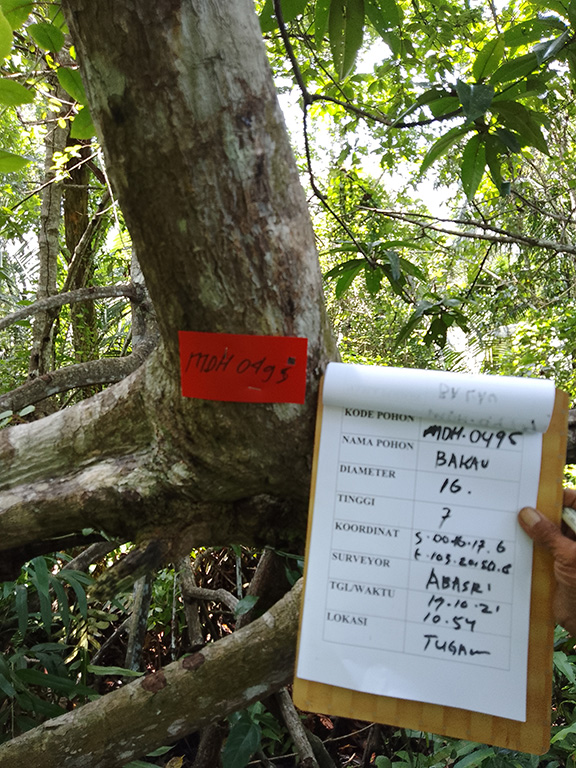 MDH 0495
KODE POHON MDH.0495
NAMA POHON BAKAU
DIAMETER 16.
TINGGI 7
KOORDINAT
SURVEYOR ABASRI
TGL/WAKTU 17.10.21
10.54
LOKASI TUGAN